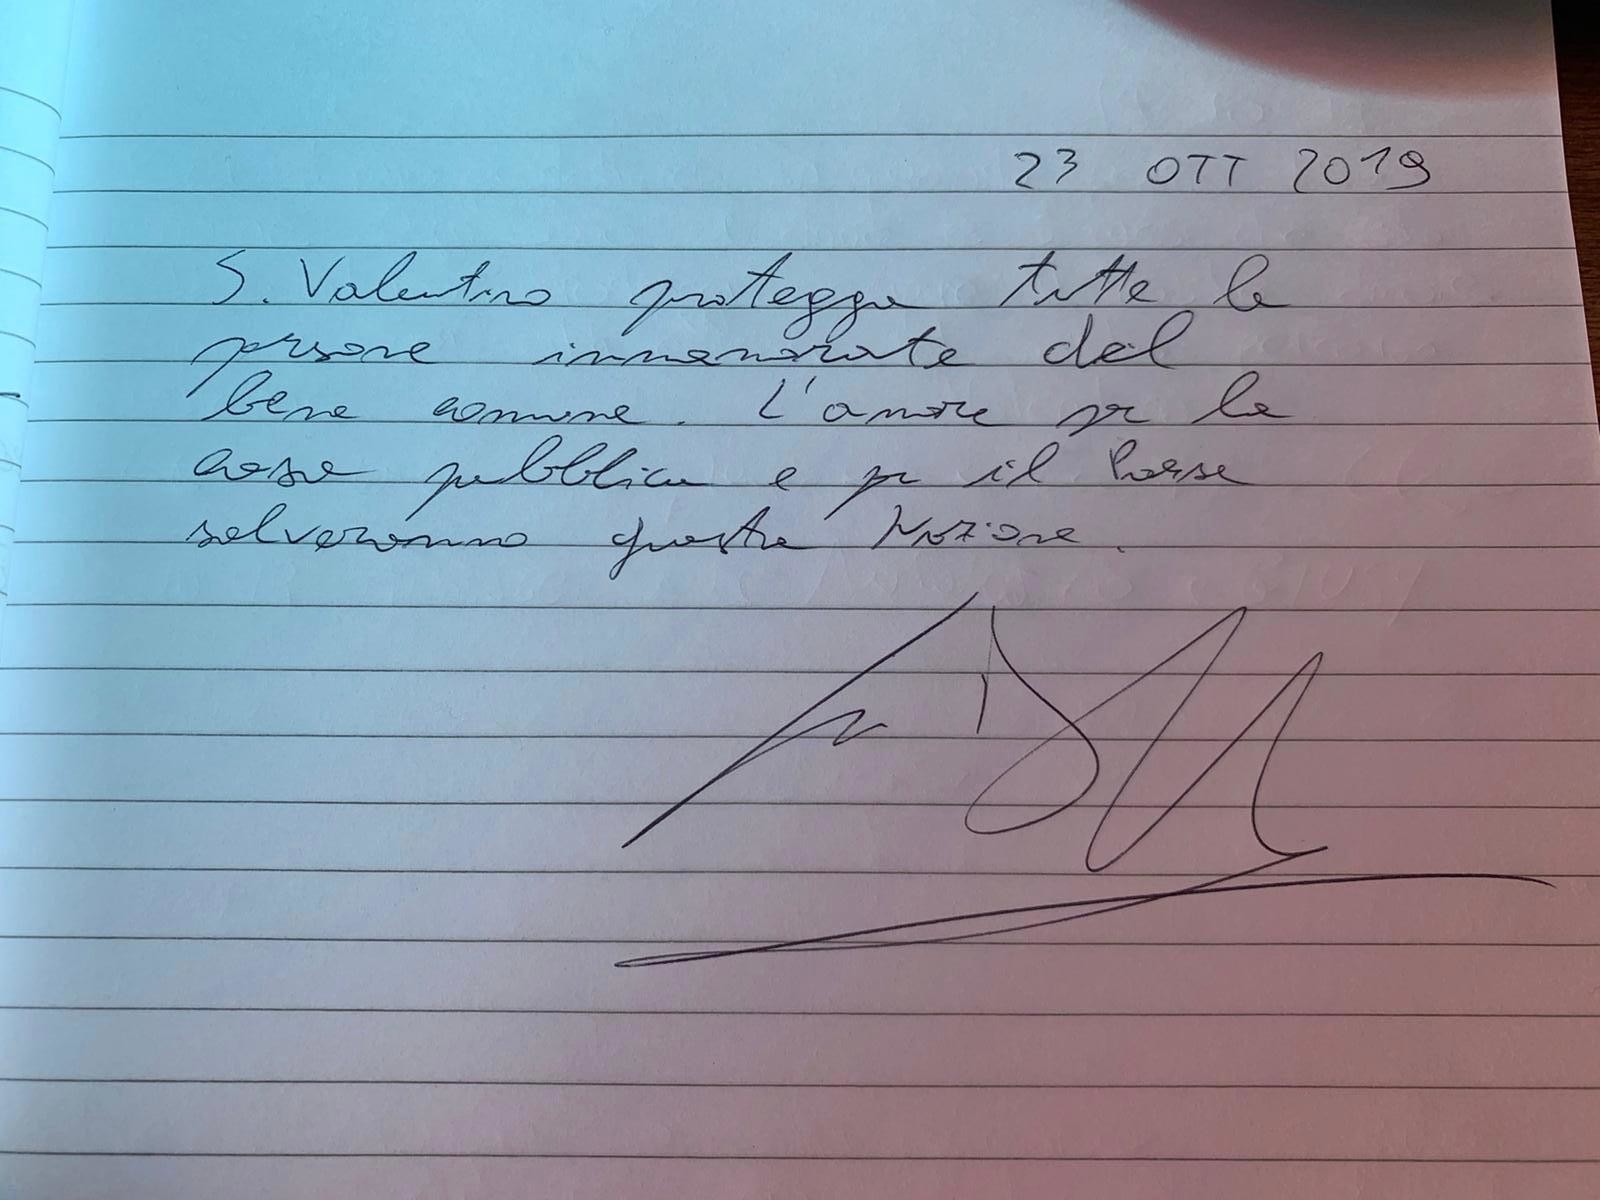 23 OTT 2019
S. Valentino protegga tutte le
persone innamorate del
bene comune. L'amore per la
cosa pubblica e per il Paese
salveranno questa Nazione.